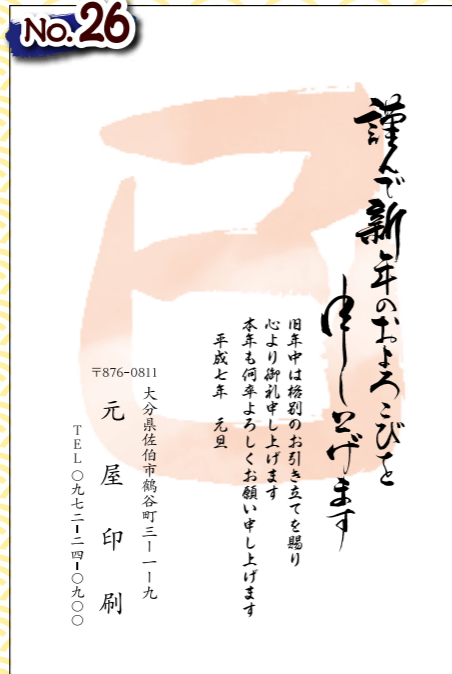 No.26
巳
謹んで新年のおよろこびを
申し上げます
旧年中は格別のお引き立てを賜り
心より御礼申し上げます
本年も何卒よろしくお願い申し上げます
平成七年 元旦
〒876-0811
大分県佐伯市鶴谷町三ー一ー九
元屋印刷
TEL〇九七二ー二四ー〇九〇〇